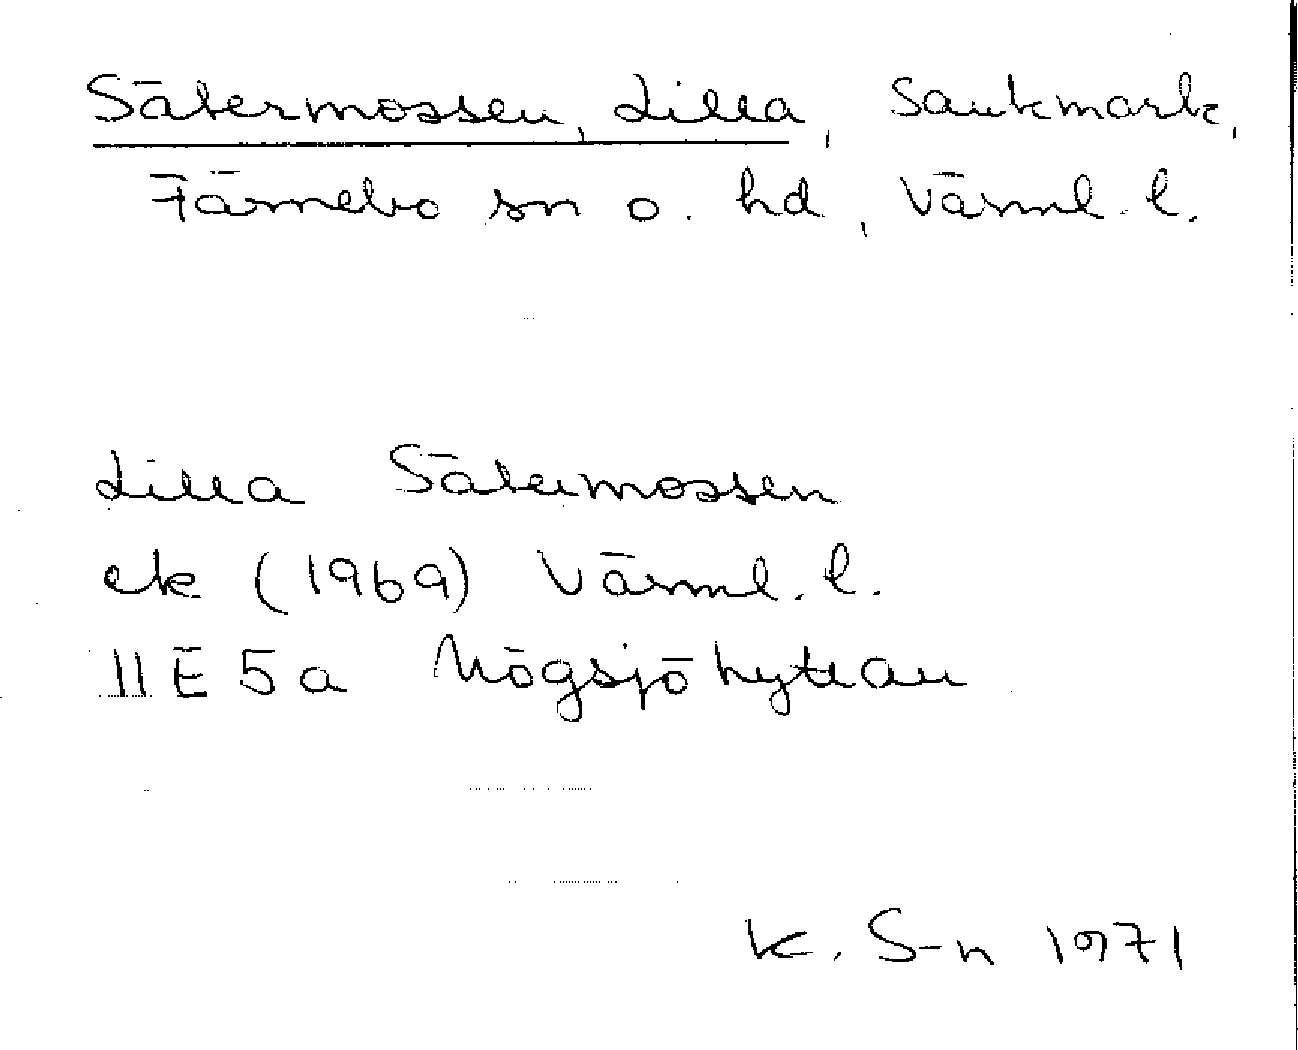 Sätermossen, Lilla, Sankmark,
Färnebo sn o. hd, Värml. l.
Lilla Sätermossen
ek (1969) Värml. l.
11E 5a Högsjöhyttan
K. S-n 1971